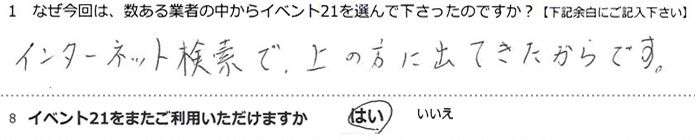 1 なぜ今回は、数ある業者の中からイベント21を選んで下さったのですか？【下記余白にご記入下さい】
インターネット検索で、上の方に出てきたからです。
8 イベント21をまたご利用いただけますか はい いいえ